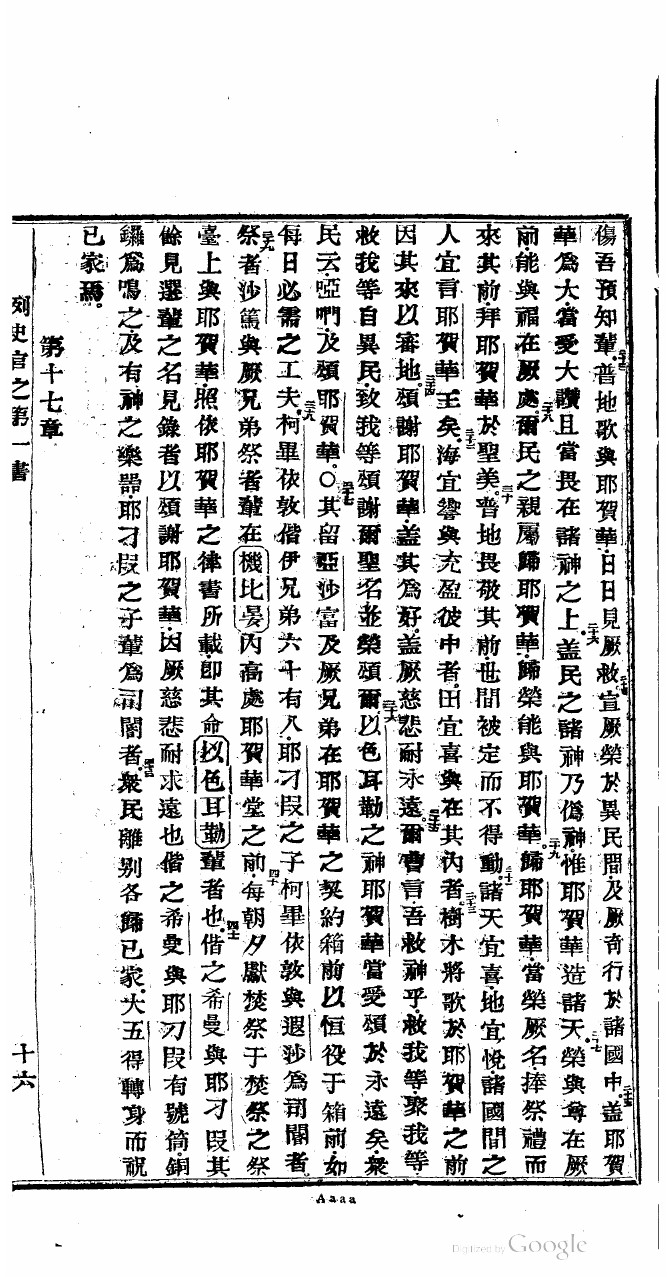 傷吾預知輩。二十三普地歌與耶賀華日日見厥救。二十四宣厥榮於異民間及厥奇行於諸國中。二十五盖耶賀
華為大當受大讚且當畏在諸神之上。二十六盖民之諸神乃偽神惟耶賀華造諸天。二十七榮與尊在厥
前能與福在厥處。二十八爾民之親屬歸耶賀華歸榮能與耶賀華。二十九歸耶賀華當榮厥名捧祭禮而
來其前拜耶賀華於聖美。三十普地畏敬其前世間被定而不得動。三十一諸天宜喜地宜悅諸國間之
人宜言耶賀華王矣。三十二海宜響與充盈彼中者田宜喜與在其內者。三十三樹木將歌於耶賀華之前
因其來以審地。三十四頌謝耶賀華盖其為好盖厥慈悲耐永遠。三十五爾曹言吾救神乎救我等聚我等
救我等自異民致我等頌謝爾聖名並榮頌爾。三十六以色耳勒之神耶賀華當受頌於永遠矣衆
民云啞們及頌耶賀華。〇三十七其留亞沙富及厥兄弟在耶賀華之契約箱前以恒役于箱前如
每日必需之工夫。三十八柯畢依敦偕伊兄弟六十有八耶刁叚之子柯畢依敦與遐沙為司閽者。
三十九祭者沙篤與厥兄弟祭者輩在機比晏內高處耶賀華堂之前。四十每朝夕獻焚祭于焚祭之祭
臺上與耶賀華照依耶賀華之律書所載即其命以色耳勒輩者也。四十一偕之希曼與耶刁叚其
餘見選輩之名見錄者以頌謝耶賀華因厥慈悲耐永遠也。偕之希曼與耶刁叚有號筒銅
鑼為鳴之及有神之樂器耶刁叚之子輩為司閽者。四十三衆民離別各歸已家大五得轉身而祝
已家焉。
第十七章
列史官之第一書
十六
Aaaa
Digitized by Google